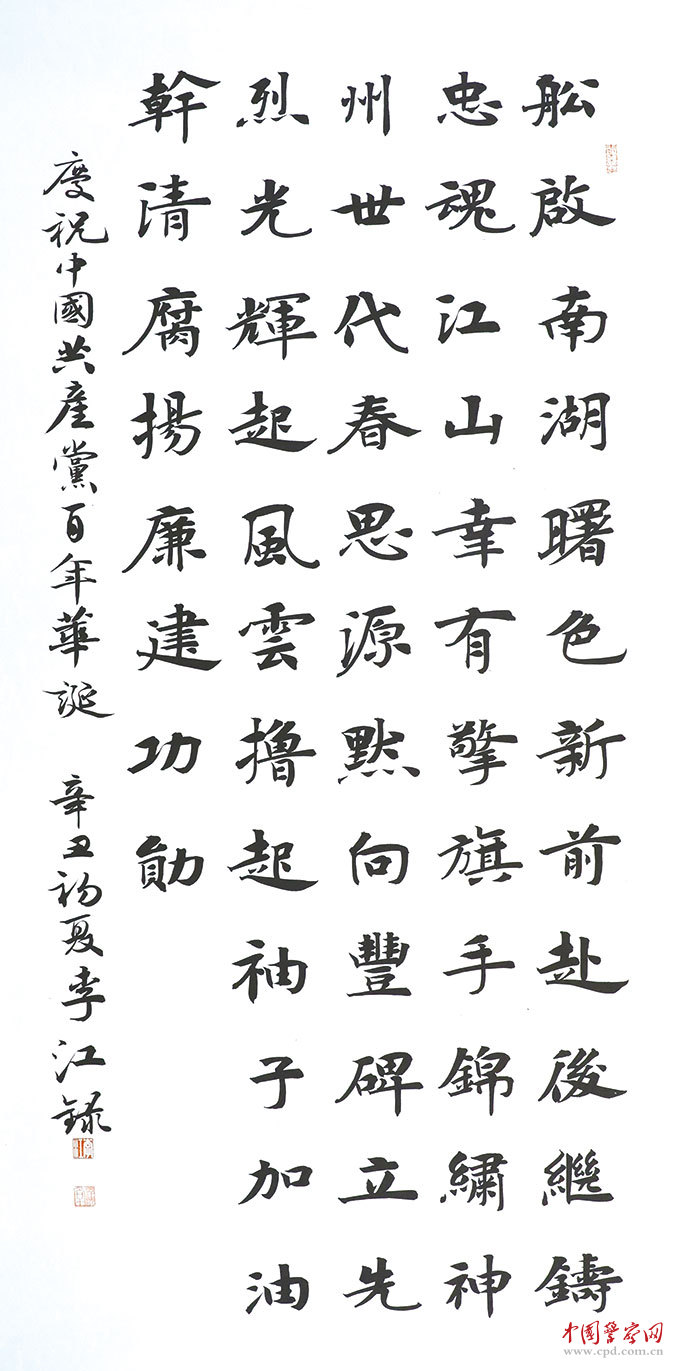 舩啟南湖曙色新前赴後繼鑄
忠魂江山幸有擎旗手錦繡神
州世代春思源默向豐碑立先
烈光輝起風雲撸起袖子加油
幹清腐揚廉建功勛
慶祝中國共產黨百年華誕 辛丑初夏李江錄
中国警察网
www.cpd.com.cn